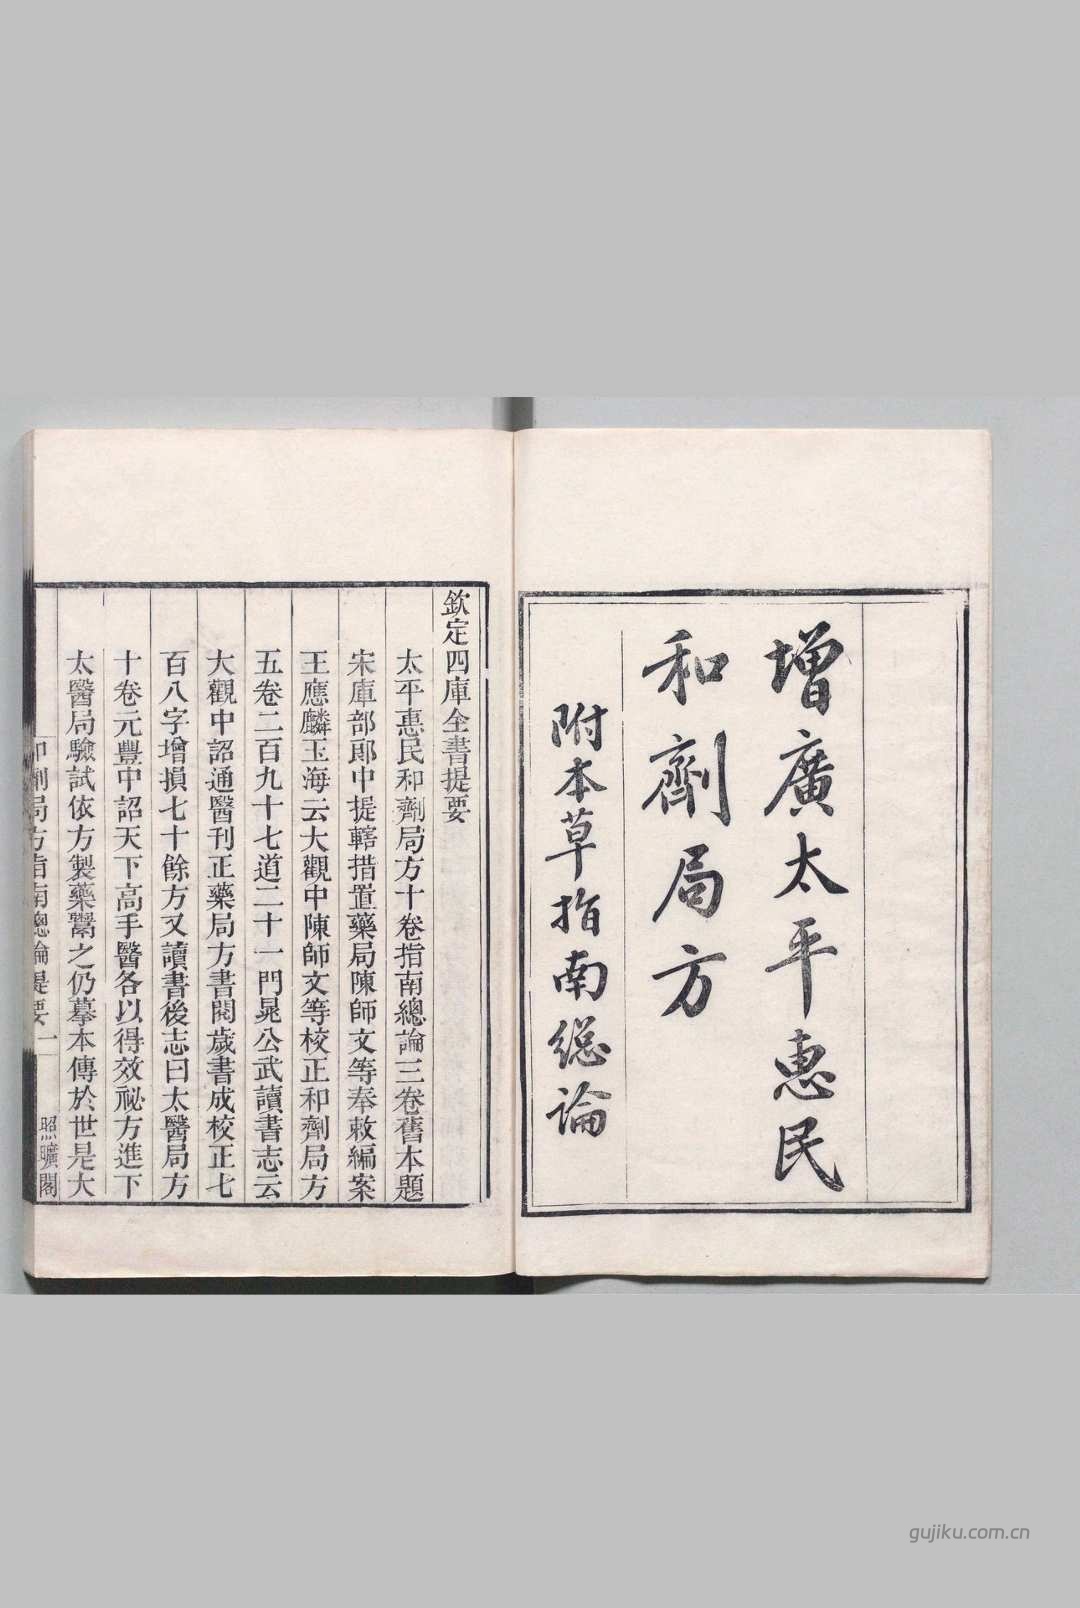 增廣太平惠民
和劑局方
附本草指南總論
欽定四庫全書提要
太平惠民和劑局方十卷指南總論三卷舊本題
宋庫部郎中提轄措置藥局陳師文等奉敕編案
王應麟玉海云大觀中陳師文等校正和劑局方
五卷二百九十七道二十一門晁公武讀書志云
大觀中詔通醫刊正藥局方書閱歲書成校正七
百八字增損七十餘方又讀書後志曰太醫局方
十卷元豐中詔天下高手醫各以得效祕方進下
太醫局驗試依方製藥鬻之仍摹本傳於世是大
和劑局方指南總論提要 一 照曠閣
gujiku.com.cn